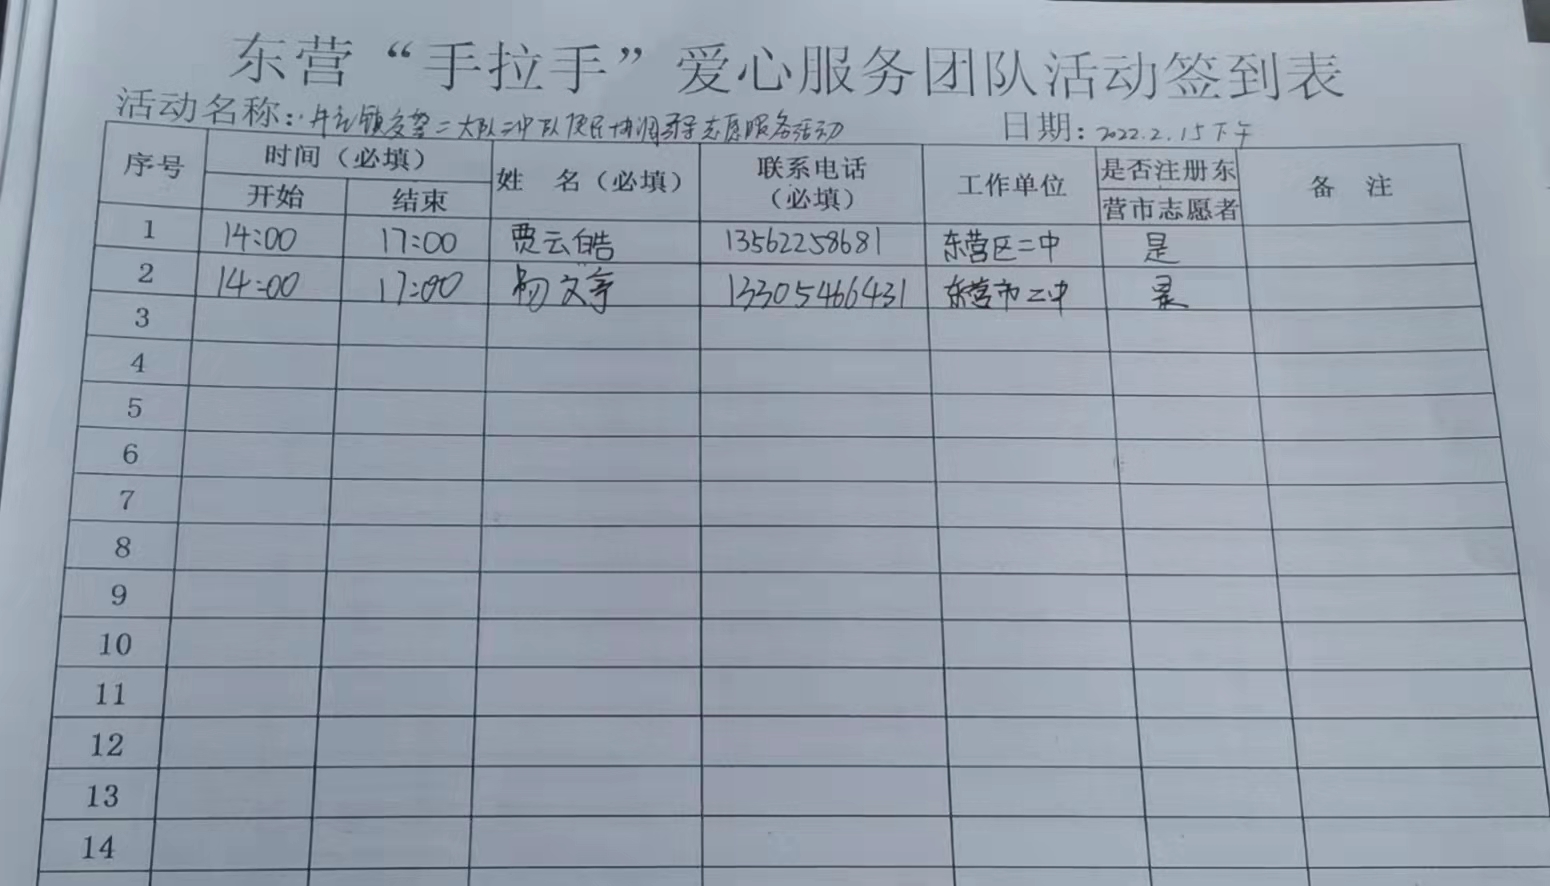 东营“手拉手”爱心服务团队活动签到表
活动名称: 二大队二中队便民协调 志愿服务活动 日期: 2022.2.15下午
序号 时间（必填） 姓 名（必填） 联系电话（必填） 工作单位 是否注册东营市志愿者 备 注
开始 结束
1 14:00 17:00 贾云皓 13562258681 东营区二中 是
2 14:00 17:00 杨文 13305466431 东营市二中 是
3
4
5
6
7
8
9
10
11
12
13
14